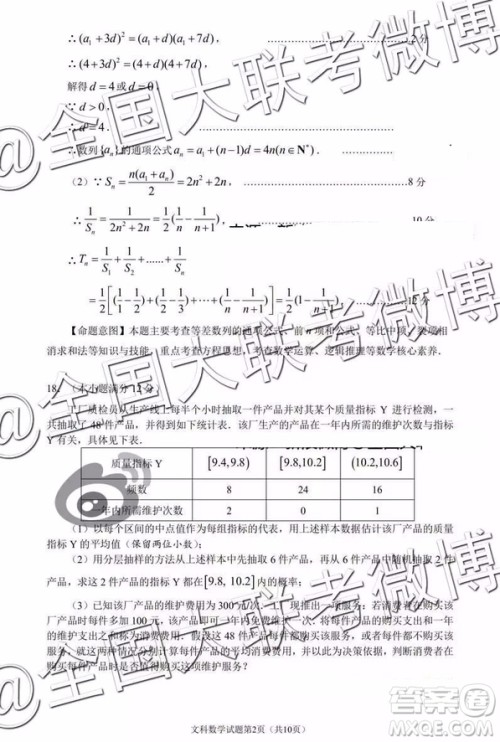 ∴(a₁+3d)²=(a₁+d)(a₁+7d), 2分
∴(4+3d)²=(4+d)(4+7d),
解得 d=4或d=0,
∵d>0,
∴d=4.
∴数列{aₙ}的通项公式 aₙ=a₁+(n−1)d=4n(n∈N*).
(2) ∵ Sₙ=n(a₁+aₙ)/2=2n²+2n, 8分
∴1/Sₙ=1/(2n²+2n)=1/2(1/n−1/(n+1)), 10分
∴Tₙ=1/S₁+1/S₂+……+1/Sₙ
=1/2[(1/1−1/2)+(1/2−1/3)+⋯+(1/n−1/(n+1))]=1/2(1−1/(n+1)) 12分
【命题意图】本题主要考查等差数列的通项公式、前 n 项和公式、等比中项、裂项相
消求和法等知识与技能,重点考查方程思想,考查数学运算、逻辑推理等数学核心素养.
18. (本小题满分 12 分)
工厂质检员从生产线上每半个小时抽取一件产品并对其某个质量指标 Y 进行检测,一
共抽取了 48 件产品,并得到如下统计表.该厂生产的产品在一年内所需的维护次数与指标
Y 有关,具体见下表.
质量指标 Y [9.4,9.8) [9.8,10.2] (10.2,10.6]
频数 8 24 16
一年内所需维护次数 2 0 1
(1)以每个区间的中点值作为每组指标的代表,用上述样本数据估计该厂产品的质量
指标 Y 的平均值(保留两位小数);
(2)用分层抽样的方法从上述样本中先抽取 6 件产品,再从 6 件产品中随机抽取 2 件
产品,求这 2 件产品的指标 Y 都在[9.8, 10.2]内的概率;
(3)已知该厂产品的维护费用为 300 元/次.工厂现推出一项服务:若消费者在购买
该厂产品时每件多加 100 元,该产品即可一年内免费维护一次.将每件产品的购买支出和一
年的维护支出之和称为消费费用.假设这 48 件产品每件都购买该服务,或者每件都不购买该
服务,就这两种情况分别计算每件产品的平均消费费用,并以此为决策依据,判断消费者在
购买每件产品时是否值得购买这项维护服务?
文科数学试题第2页(共10页)
@全国大联考微博
@全国大联考微博
@全国大联考微博